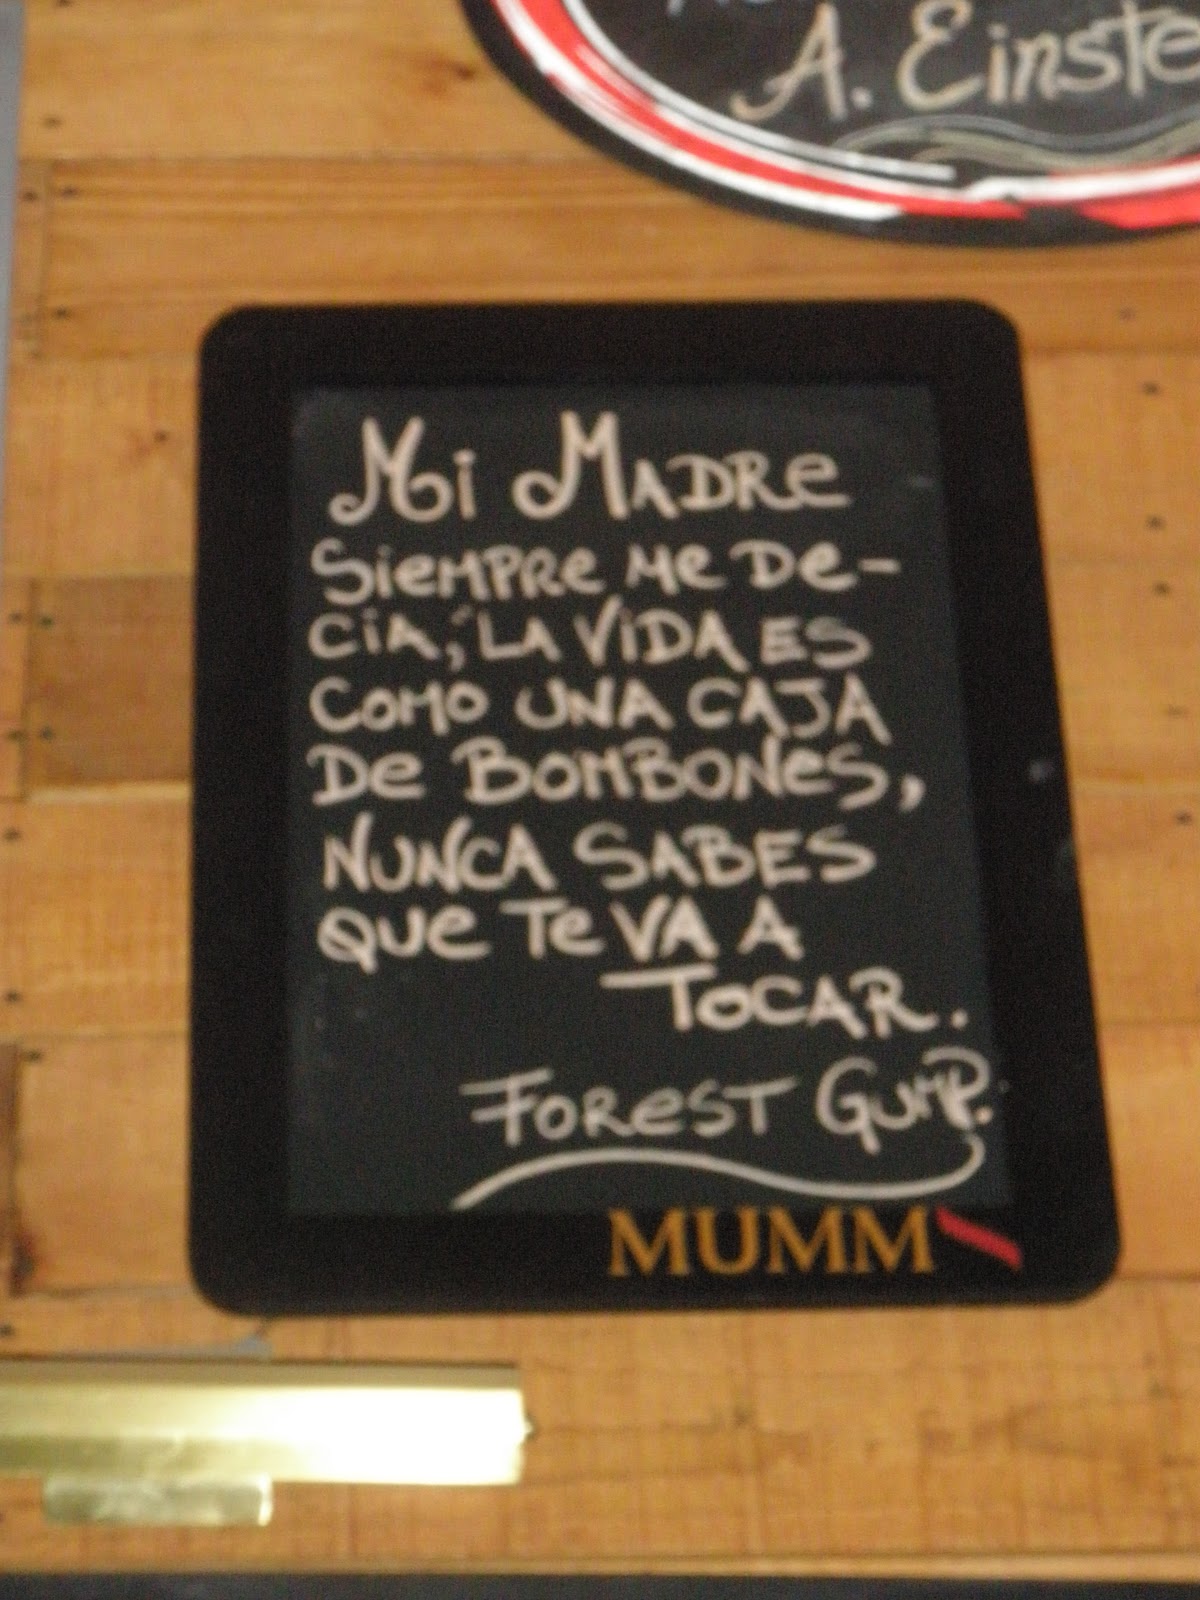 A. Einste
Mi Madre
siempre me de-
cia, "La vida es
como una caja
de bombones,
nunca sabes
que te va a
tocar.
Forest Gump.
MUMM